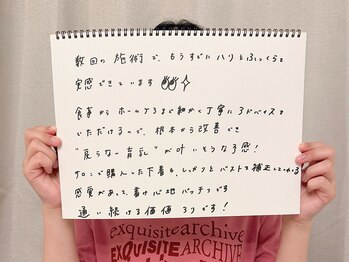 数回の施術で、もうすでにハリとふっくらを
実感できています
食事からホームケアまで細かく丁寧にアドバイスを
いただけるので、根本から改善でき
"戻らない育乳"が叶いそうな予感！
サロンで購入した下着も、しっかりとバストを補正してくれる
感覚があって、着け心地バッチリです
通い続ける価値アリです！
exquisitearchive
EXQUISITEARCHIVE